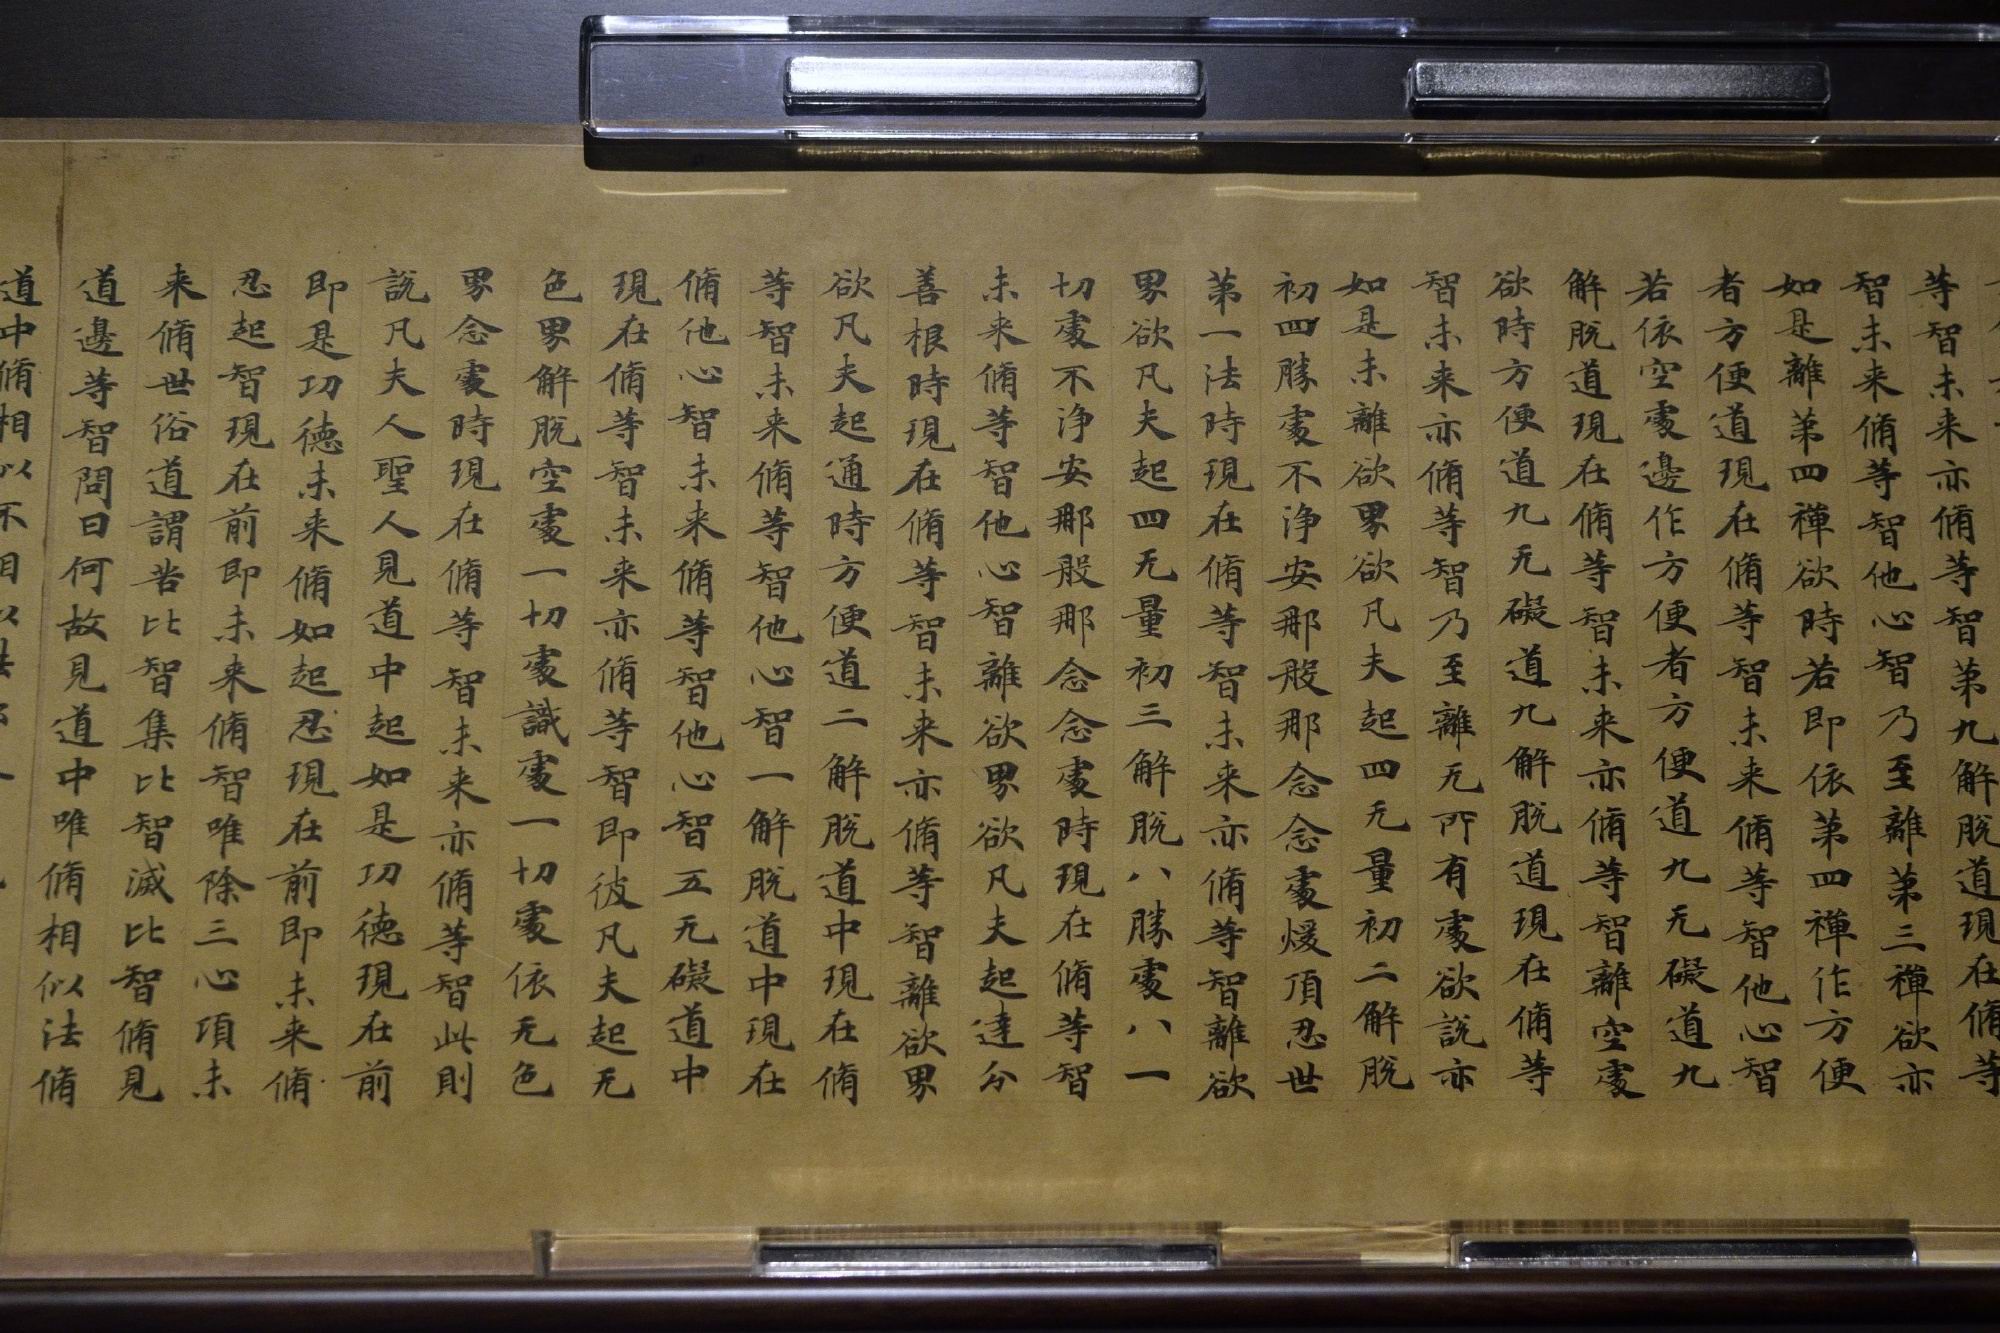 等智未来亦脩等智第九解脱道現在脩等
智未来脩等智他心智乃至離第三禪欲亦
如是離第四禪欲時若即依第四禪作方便
者方便道現在脩等智未来脩等智他心智
若依空處邊作方便者方便道九无礙道九
解脱道現在脩等智未来亦脩等智離空處
欲時方便道九无礙道九解脱道現在脩等
智未来亦脩等智乃至離无所有處欲說亦
如是未離欲界欲凡夫起四无量初二解脱
初四勝處不淨安那般那念念處煖頂忍世
第一法時現在脩等智未来亦脩等智離欲
界欲凡夫起四无量初三解脱八勝處八一
切處不淨安那般那念念處時現在脩等智
未来脩等智他心智離欲界欲凡夫起達分
善根時現在脩等智未来亦脩等智離欲界
欲凡夫起通時方便道二解脱道中現在脩
等智未来脩等智他心智一解脱道中現在
脩他心智未来脩等智他心智五无礙道中
現在脩等智未来亦脩等智即彼凡夫起无
色界解脱空處一切處識處一切處依无色
界念處時現在脩等智未来亦脩等智此則
說凡夫人聖人見道中起如是功德現在前
即是功德未来脩如起忍現在前即未来脩
忍起智現在前即未来脩智唯除三心頃未
来脩世俗道謂苦比智集比智滅比智脩見
道邊等智問曰何故見道中唯脩相似法脩
道中脩相似不相似法